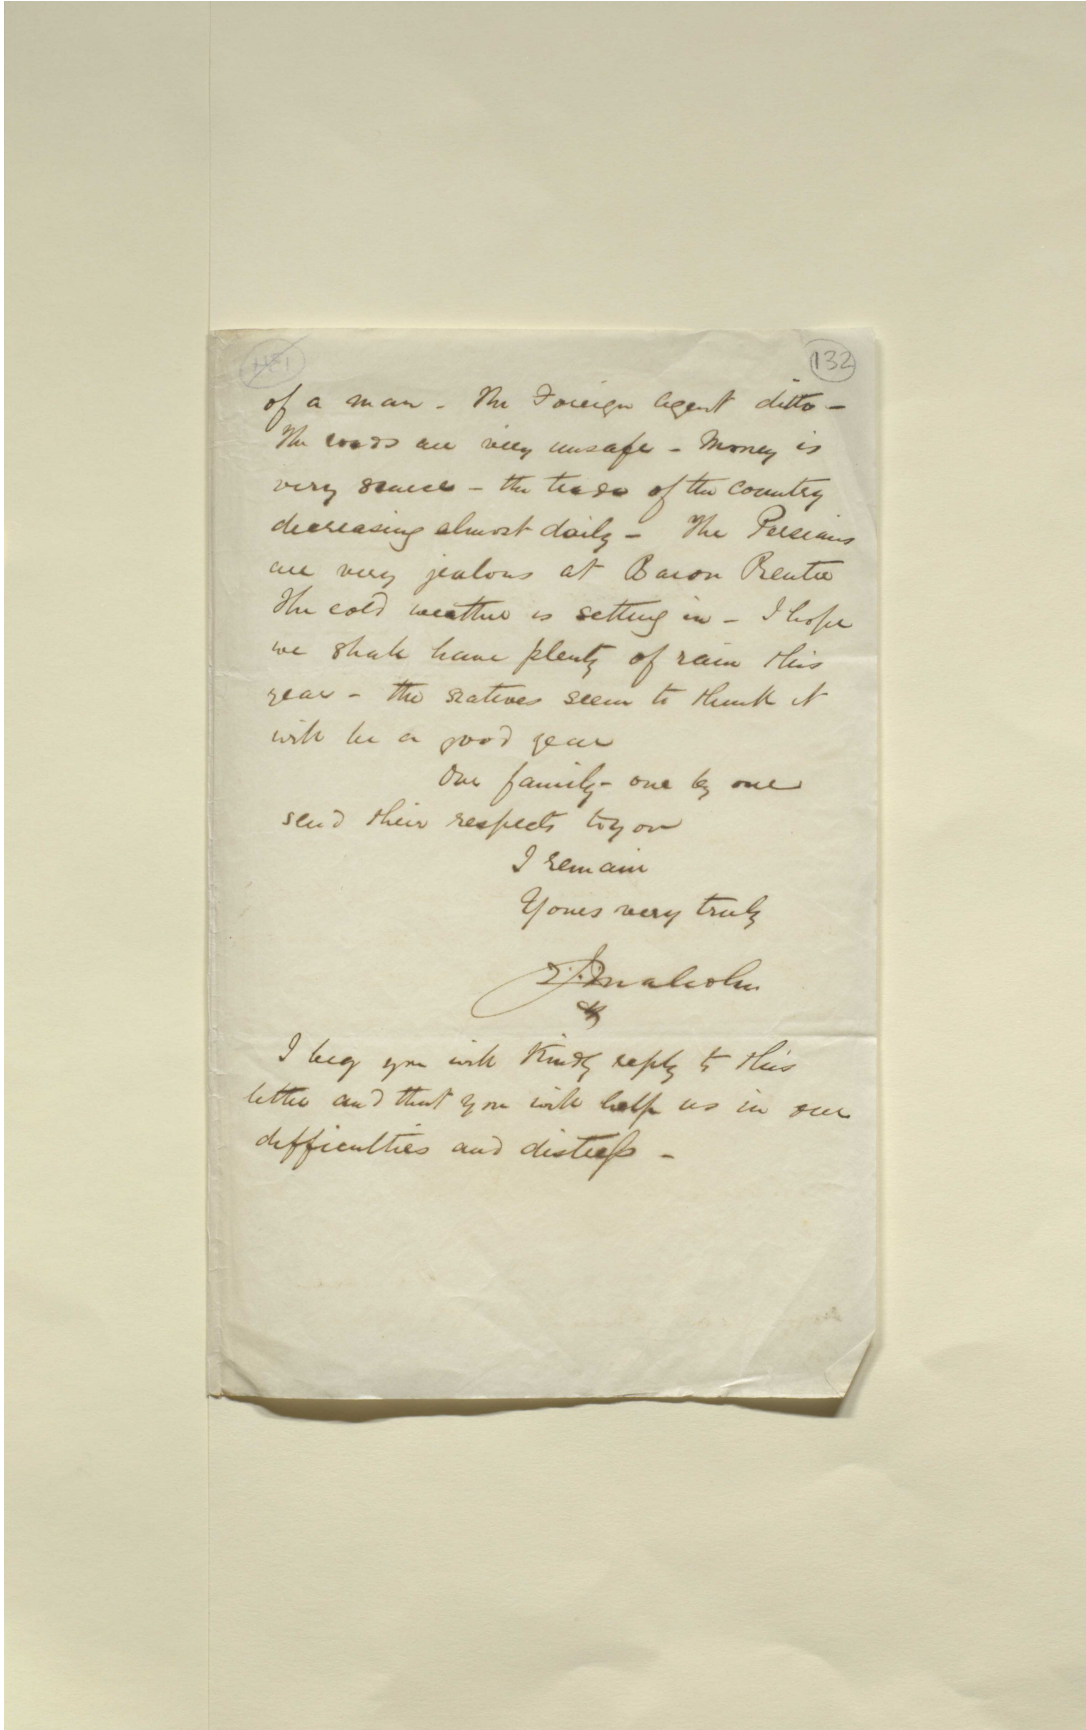 132
of a man - The Foreign Agent ditto -
The roads are very unsafe - Money is
very scarce - the trade of the Country
decreasing almost daily - The Persians
are very jealous at Baron Reuter
The cold weather is setting in - I hope
we shall have plenty of rain this
year - the natives seem to think it
will be a good year
Our family - one by one
send their respects to you
I remain
Yours very truly
Malcolm
I beg you will Kindly reply to this
letter and that you will help us in our
difficulties and distress -